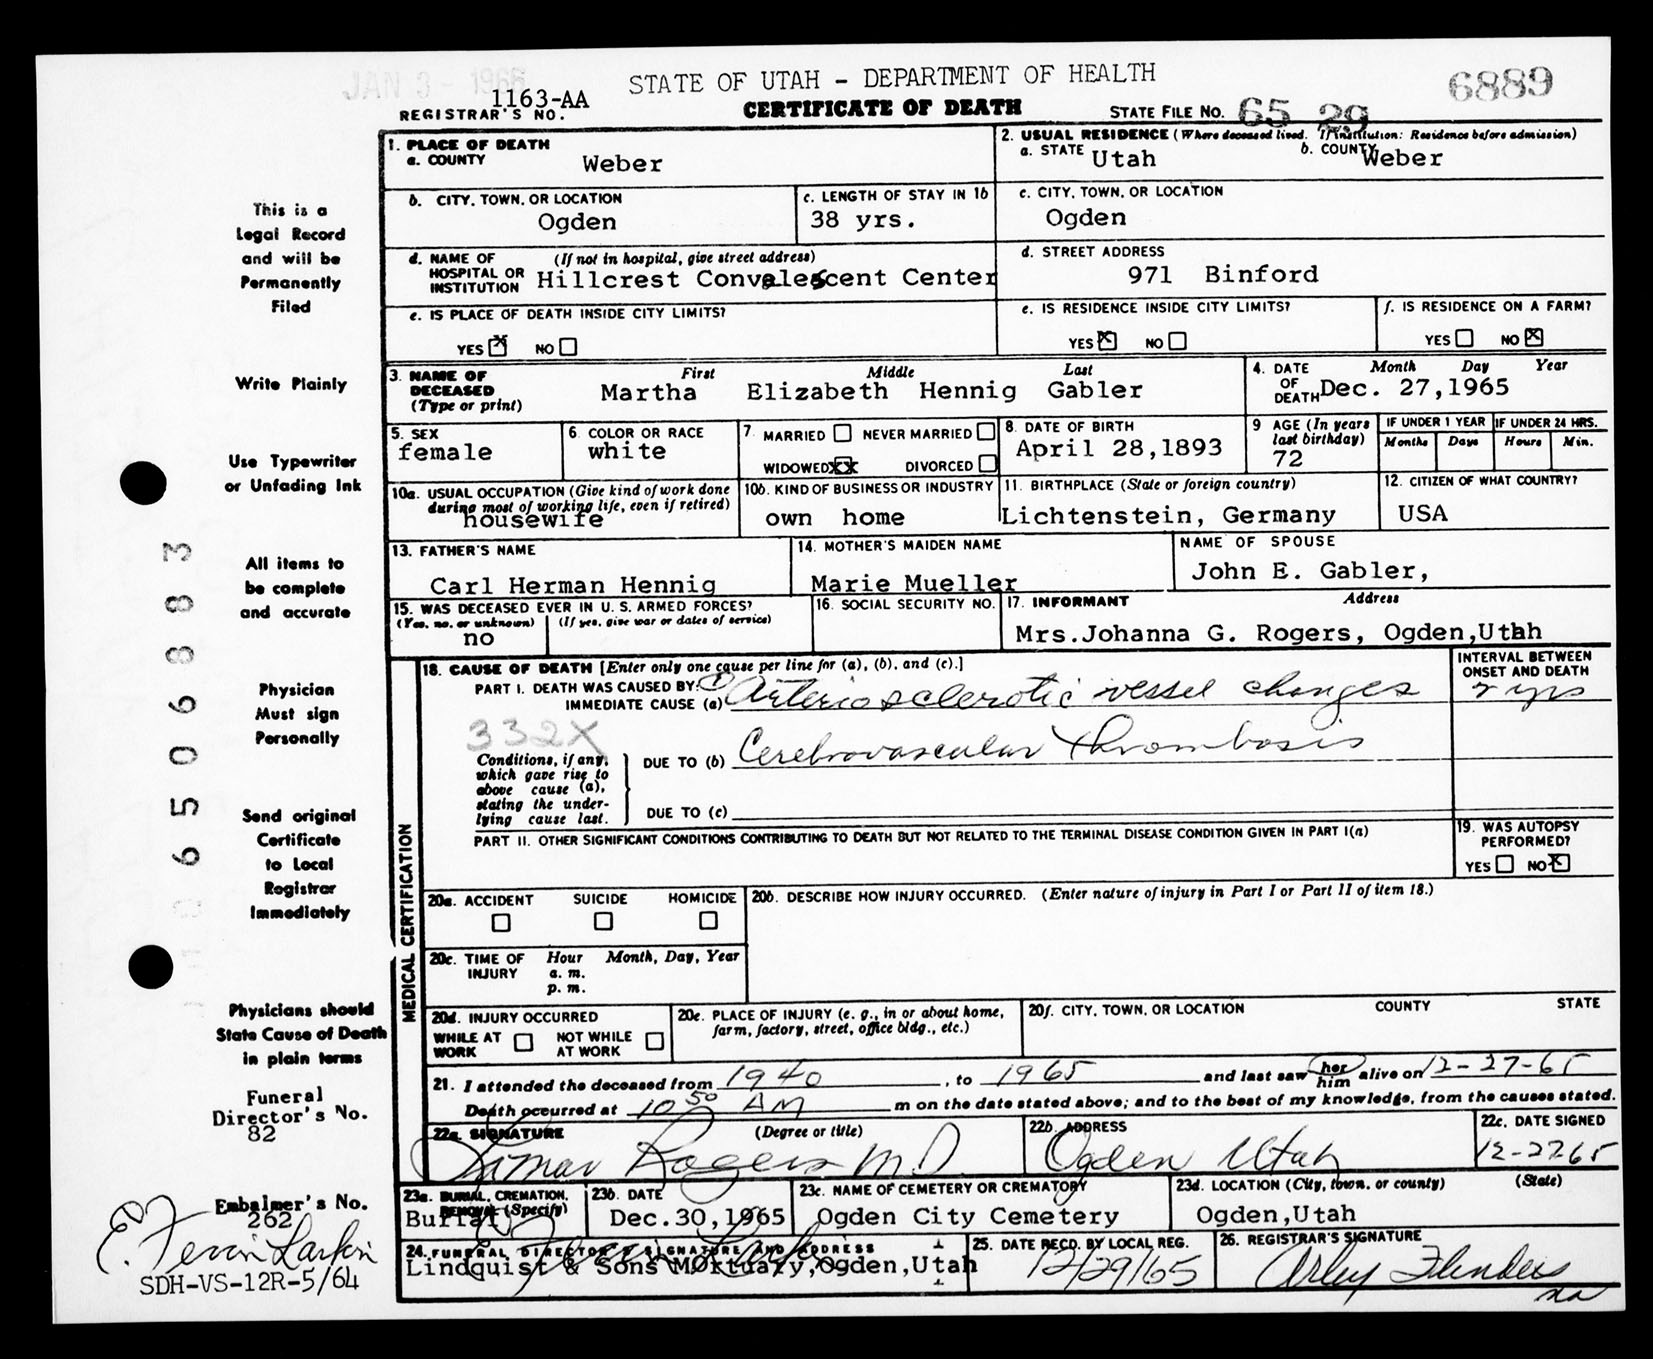 JAN 3 - 1966
STATE OF UTAH - DEPARTMENT OF HEALTH
6889
1163-AA
REGISTRAR'S NO.
CERTIFICATE OF DEATH
STATE FILE NO. 65 29
1. PLACE OF DEATH
a. COUNTY Weber
2. USUAL RESIDENCE (Where deceased lived. If institution: Residence before admission)
a. STATE Utah b. COUNTY Weber
b. CITY, TOWN, OR LOCATION
Ogden
c. LENGTH OF STAY IN 1b
38 yrs.
c. CITY, TOWN, OR LOCATION
Ogden
d. NAME OF HOSPITAL OR INSTITUTION (If not in hospital, give street address)
Hillcrest Convalescent Center
d. STREET ADDRESS
971 Binford
e. IS PLACE OF DEATH INSIDE CITY LIMITS?
YES X NO
e. IS RESIDENCE INSIDE CITY LIMITS?
YES X NO
f. IS RESIDENCE ON A FARM?
YES NO X
3. NAME OF DECEASED (Type or print)
First Middle Last
Martha Elizabeth Hennig Gabler
4. DATE OF DEATH Month Day Year
Dec. 27,1965
5. SEX
female
6. COLOR OR RACE
white
7. MARRIED NEVER MARRIED
WIDOWED XX DIVORCED
8. DATE OF BIRTH
April 28,1893
9 AGE (In years last birthday)
72
IF UNDER 1 YEAR
Months Days
IF UNDER 24 HRS.
Hours Min.
10a. USUAL OCCUPATION (Give kind of work done during most of working life, even if retired)
housewife
10b. KIND OF BUSINESS OR INDUSTRY
own home
11. BIRTHPLACE (State or foreign country)
Lichtenstein, Germany
12. CITIZEN OF WHAT COUNTRY?
USA
13. FATHER'S NAME
Carl Herman Hennig
14. MOTHER'S MAIDEN NAME
Marie Mueller
NAME OF SPOUSE
John E. Gabler,
15. WAS DECEASED EVER IN U. S. ARMED FORCES?
(Yes, no, or unknown) (If yes, give war or dates of service)
no
16. SOCIAL SECURITY NO.
17. INFORMANT Address
Mrs.Johanna G. Rogers, Ogden,Utah
MEDICAL CERTIFICATION
18. CAUSE OF DEATH [Enter only one cause per line for (a), (b), and (c).]
INTERVAL BETWEEN ONSET AND DEATH
PART I. DEATH WAS CAUSED BY:
IMMEDIATE CAUSE (a) Arteriosclerotic vessel changes
2 yrs
332X
Conditions, if any, which gave rise to above cause (a), stating the underlying cause last.
DUE TO (b) Cerebrovascular thrombosis
DUE TO (c)
PART II. OTHER SIGNIFICANT CONDITIONS CONTRIBUTING TO DEATH BUT NOT RELATED TO THE TERMINAL DISEASE CONDITION GIVEN IN PART I(a)
19. WAS AUTOPSY PERFORMED?
YES NO X
20a. ACCIDENT SUICIDE HOMICIDE
20b. DESCRIBE HOW INJURY OCCURRED. (Enter nature of injury in Part I or Part II of item 18.)
20c. TIME OF INJURY Hour Month, Day, Year
a. m.
p. m.
20d. INJURY OCCURRED
WHILE AT WORK NOT WHILE AT WORK
20e. PLACE OF INJURY (e. g., in or about home, farm, factory, street, office bldg., etc.)
20f. CITY, TOWN, OR LOCATION COUNTY STATE
21. I attended the deceased from 1940, to 1965 and last saw her him alive on 12-27-65
Death occurred at 10 50 AM m on the date stated above; and to the best of my knowledge, from the causes stated.
22a. SIGNATURE (Degree or title)
Lamar Rogers M.D.
22b. ADDRESS
Ogden Utah
22c. DATE SIGNED
12-27-65
23a. BURIAL, CREMATION, REMOVAL (Specify)
Burial
23b. DATE
Dec.30,1965
23c. NAME OF CEMETERY OR CREMATORY
Ogden City Cemetery
23d. LOCATION (City, town, or county) (State)
Ogden,Utah
24. FUNERAL DIRECTOR'S SIGNATURE AND ADDRESS
Lindquist & Sons MOrtuary,Ogden,Utah
25. DATE RECD. BY LOCAL REG.
12/29/65
26. REGISTRAR'S SIGNATURE
Arley Flinders
This is a
Legal Record
and will be
Permanently
Filed
Write Plainly
Use Typewriter
or Unfading Ink
All items to
be complete
and accurate
Physician
Must sign
Personally
Send original
Certificate
to Local
Registrar
Immediately
Physicians should
State Cause of Death
in plain terms
Funeral
Director's No.
82
Embalmer's No.
262
E. Fevrin Larkin
SDH-VS-12R-5/64
6 5 0 6 8 8 3